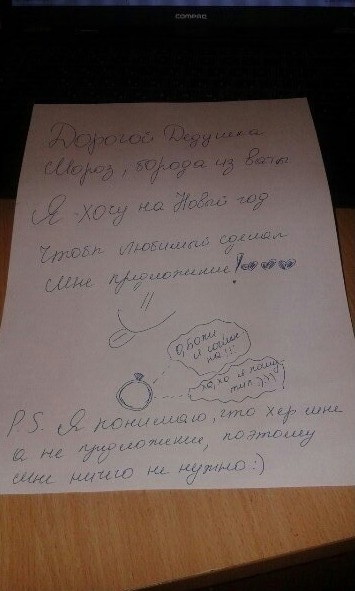 COMPAQ
Дорогой Дедушка
Мороз, борода из ваты
Я хочу на Новый год
Чтобы любимый сделал
мне предложение!
О, Боже
я соглас
на!!!
ха, ха я пошу
тил )))
P.S. Я понимаю, что хер мне
а не предложение, поэтому
мне ничего не нужно :)